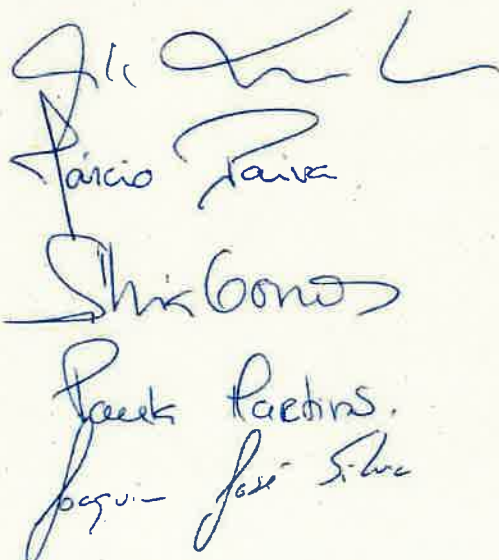 Márcio Paiva
Sílvia Gomes
Paula Martins.
Joaquim José Silva